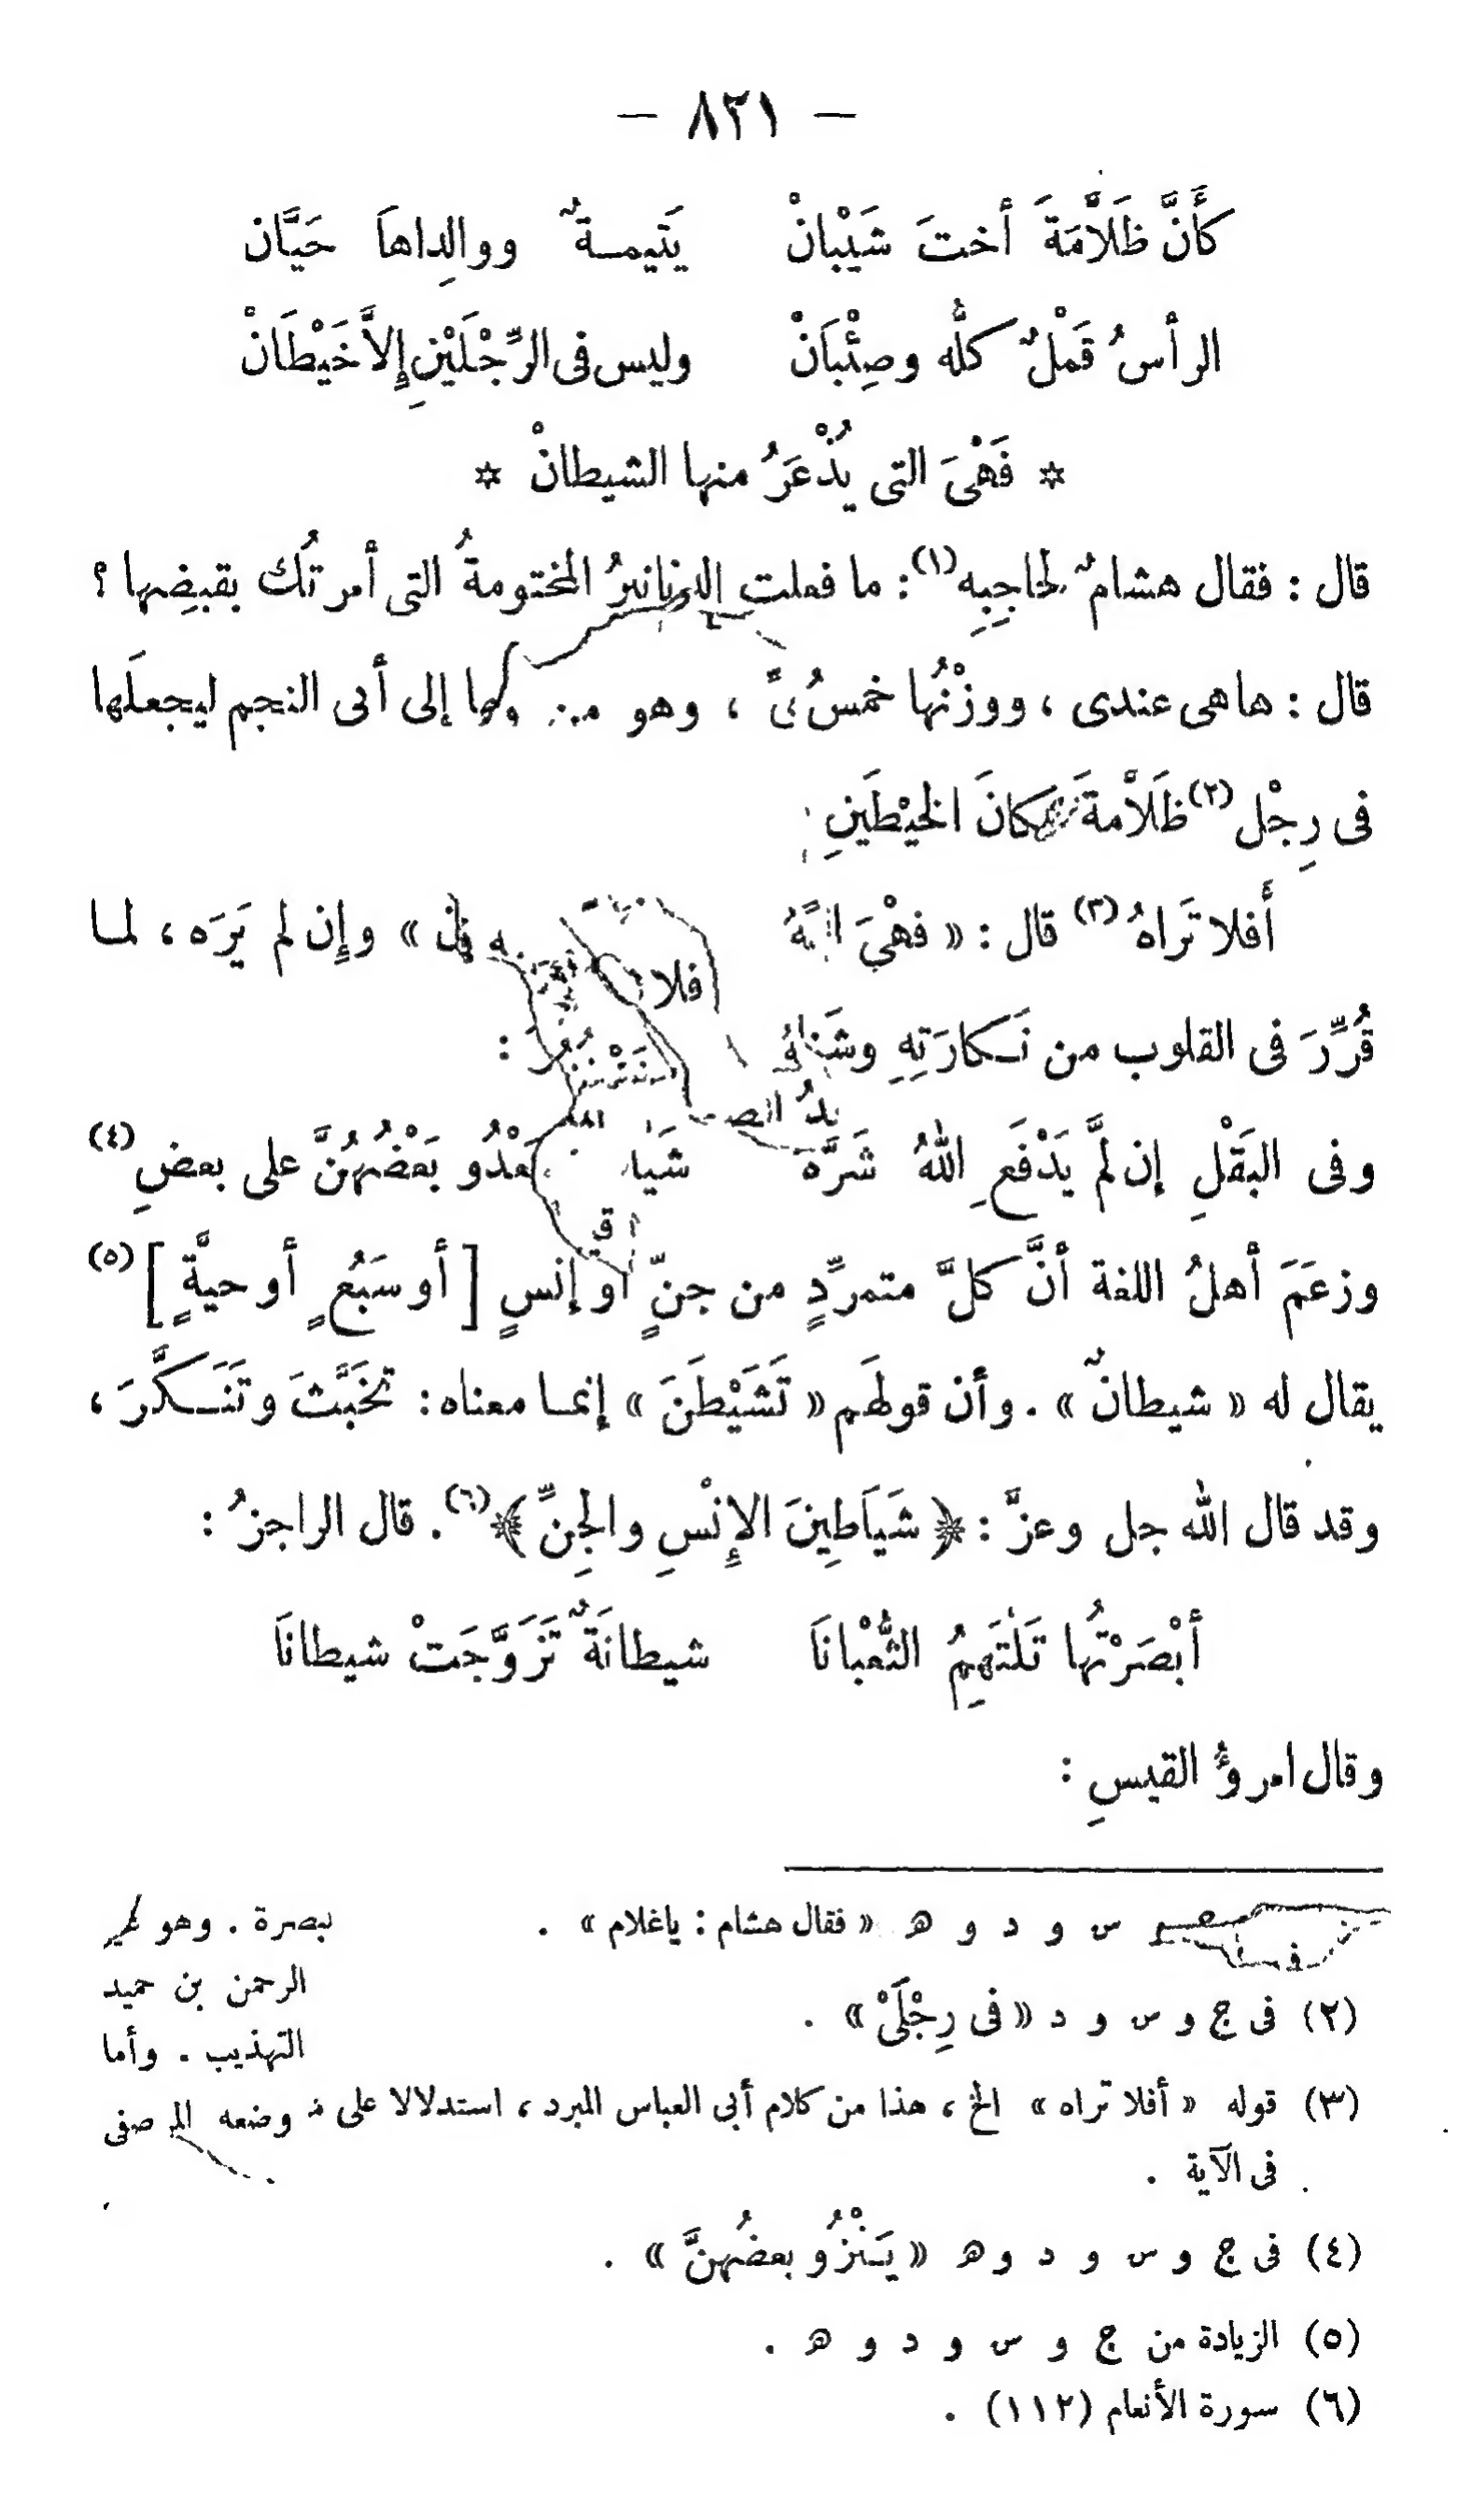 — ٨٢١ —
كَأَنَّ ظَلَّامَةَ أختَ شَيْبانْ يَتيمـةٌ ووالِداهاَ حَيَّان
الرأسُ قَمْلٌ كلُّه وصِئْبَانْ وليس فى الرِّجْلَيْنِ إلاَّ خَيْطَانْ
* فَهْىَ التى يُذْعَرُ منها الشيطانْ *
قال : فقال هشامٌ لحاجِبِه (١) : ما فعلت الدنانيرُ المختومةُ التى أمرتُك بقبضِها ؟
قال : هاهى عندى ، ووزْنُها خمسُ ، وهو إلى أبى النجم ليجعلَها
فى رِجْل (٢) ظَلَّامةَ مكانَ الخيْطَينِ
أفلا تَراهُ (٣) قال : « فهْىَ » وإن لم يَرَه ، لمـا
قُرِّرَ فى القلوب من نَـكارَتِهِ :
وفى البَقْلِ إن لمَّ يَدْفَعِ اللهُ شَرَّهُ يَعْدُو بَعْضُهُنَّ على بعضِ (٤)
وزعَمَ أهلُ اللغة أنَّ كلَّ متمرِّدٍ من جنٍّ أو إنسٍ [ أو سَبُعٍ أو حيةٍ ] (٥)
يقال له « شيطانٌ » . وأن قولهَم « تَشَيْطَنَ » إنمـا معناه : تخَبَّثَ وتَنَـكَّرَ ،
وقد قال الله جل وعزَّ : ﴿ شَيَاطِينَ الإِنْسِ والجِنِّ ﴾ (٦) . قال الراجزُ :
أبْصَرْتُها تَلتَهِمُ الثُّعْبانَا شيطانَةٌ تَزَوَّجَتْ شيطانَا
وقال امرؤُ القيسِ :
س و د و ه « فقال هشام : ياغلام » .
بصرة . وهو
(٢) فى ج و س و د « فى رِجْلَىْ » .
الرحمن بن حميد
التهذيب . وأما
(٣) قوله « أفلا تراه » الخ ، هذا من كلام أبى العباس المبرد ، استدلالا على وضعه
فى الآية .
(٤) فى ج و س و د و ه « يَـنْزُو بعضُهنَّ » .
(٥) الزيادة من ج و س و د و ه .
(٦) سورة الأنعام (١١٢) .